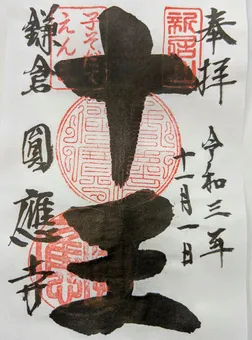 奉拝
令和三年
十一月一日
十王
子そだて
えんま
鎌倉
圓應寺